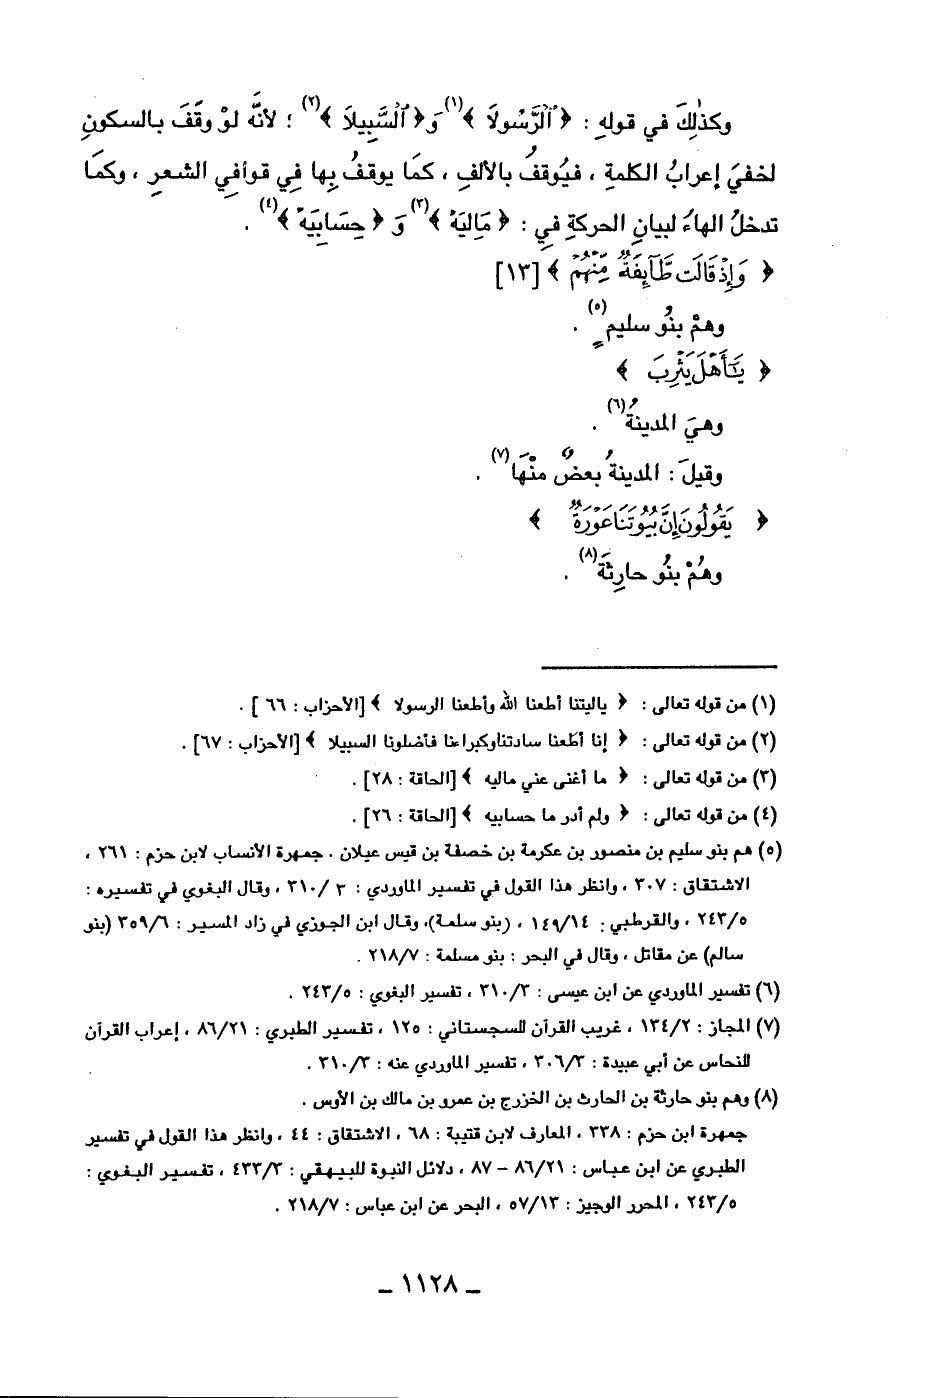 وكذٰلِكَ في قولهِ : ﴿ ٱلرَّسُولَا ﴾(١) وَ﴿ ٱلسَّبِيلَا ﴾(٢) ؛ لأنَّه لوْ وقَفَ بالسكونِ
لخفيَ إعرابُ الكلمةِ ، فيُوقفُ بالألفِ ، كمَا يوقفُ بِها فِي قوافِي الشعرِ ، وكمَا
تدخلُ الهاءُ لبيانِ الحركةِ فِي : ﴿ مَالِيَهْ ﴾(٣) وَ ﴿ حِسَابِيَهْ ﴾(٤) .
﴿ وَإِذْ قَالَت طَّآئِفَةٌ مِّنْهُمْ ﴾ [١٣]
وهمْ بنُو سليمٍ(٥) .
﴿ يَـٰٓأَهْلَ يَثْرِبَ ﴾
وهيَ المدينةُ(٦) .
وقيلَ : المدينةُ بعضٌ منْهَا(٧) .
﴿ يَقُولُونَ إِنَّ بُيُوتَنَا عَوْرَةٌ ﴾
وهُمْ بنُو حارِثَةَ(٨) .
(١) من قوله تعالى : ﴿ ياليتنا أطعنا الله وأطعنا الرسولا ﴾ [الأحزاب : ٦٦] .
(٢) من قوله تعالى : ﴿ إنا أطعنا سادتنا وكبراءنا فأضلونا السبيلا ﴾ [الأحزاب : ٦٧] .
(٣) من قوله تعالى : ﴿ ما أغنى عني ماليه ﴾ [الحاقة : ٢٨] .
(٤) من قوله تعالى : ﴿ ولم أدر ما حسابيه ﴾ [الحاقة : ٢٦] .
(٥) هم بنو سليم بن منصور بن عكرمة بن خصفة بن قيس عيلان . جمهرة الأنساب لابن حزم : ٢٦١ ،
الاشتقاق : ٣٠٧ ، وانظر هذا القول في تفسير الماوردي : ٣ /٣١٠ ، وقال البغوي في تفسيره :
٢٤٣/٥ ، والقرطبي : ١٤٩/١٤ ، (بنو سلمة)، وقال ابن الجوزي في زاد المسير : ٣٥٩/٦ (بنو
سالم) عن مقاتل ، وقال في البحر : بنو مسلمة : ٢١٨/٧ .
(٦) تفسير الماوردي عن ابن عيسى : ٣١٠/٣ ، تفسير البغوي : ٢٤٣/٥ .
(٧) المجاز : ١٣٤/٢ ، غريب القرآن للسجستاني : ١٢٥ ، تفسير الطبري : ٨٦/٢١ ، إعراب القرآن
للنحاس عن أبي عبيدة : ٣٠٦/٣ ، تفسير الماوردي عنه : ٣١٠/٣ .
(٨) وهم بنو حارثة بن الحارث بن الخزرج بن عمرو بن مالك بن الأوس .
جمهرة ابن حزم : ٣٣٨ ، المعارف لابن قتيبة : ٦٨ ، الاشتقاق : ٤٤ ، وانظر هذا القول في تفسير
الطبري عن ابن عباس : ٨٦/٢١ – ٨٧ ، دلائل النبوة للبيهقي : ٤٣٣/٣ ، تفسير البغوي :
٢٤٣/٥ ، المحرر الوجيز : ٥٧/١٣ ، البحر عن ابن عباس : ٢١٨/٧ .
ـ ١١٢٨ ـ